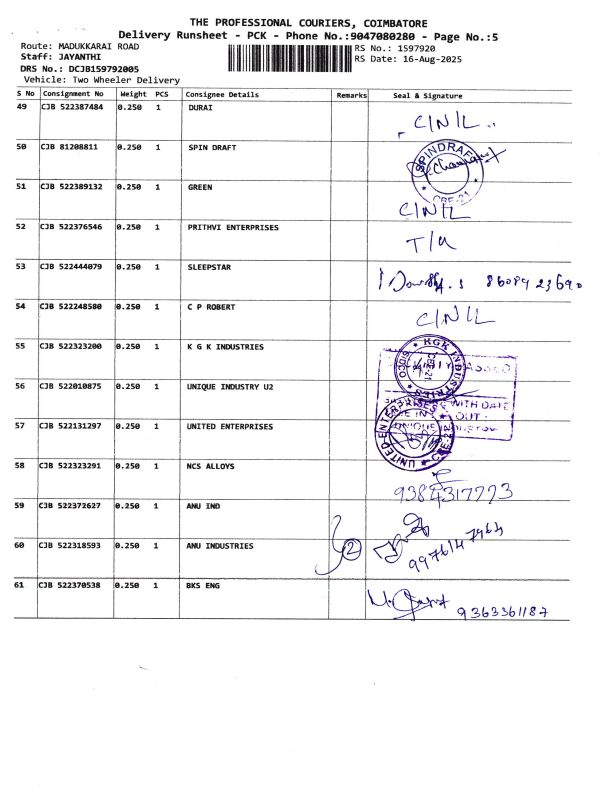 THE PROFESSIONAL COURIERS, COIMBATORE
Delivery Runsheet - PCK - Phone No.:9047080280 - Page No.:5
Route: MADUKKARAI ROAD
RS No.: 1597920
Staff: JAYANTHI
RS Date: 16-Aug-2025
DRS No.: DCJB159792005
Vehicle: Two Wheeler Delivery
S No Consignment No Weight PCS Consignee Details Remarks Seal & Signature
49 CJB 522387484 0.250 1 DURAI C/N/L
50 CJB 81208811 0.250 1 SPIN DRAFT SPINDRAFT CBE-21
51 CJB 522389132 0.250 1 GREEN C/N/L
52 CJB 522376546 0.250 1 PRITHVI ENTERPRISES T/U
53 CJB 522444079 0.250 1 SLEEPSTAR
54 CJB 522248580 0.250 1 C P ROBERT C/N/L
55 CJB 522323200 0.250 1 K G K INDUSTRIES KGK INDUSTRIES SIDCO CBE-21
56 CJB 522010875 0.250 1 UNIQUE INDUSTRY U2 WITH DATE
OUT
57 CJB 522131297 0.250 1 UNITED ENTERPRISES UNITED ENTERPRISES
58 CJB 522323291 0.250 1 NCS ALLOYS 9384317773
59 CJB 522372627 0.250 1 ANU IND
60 CJB 522318593 0.250 1 ANU INDUSTRIES 2
61 CJB 522370538 0.250 1 BKS ENG 9363361187